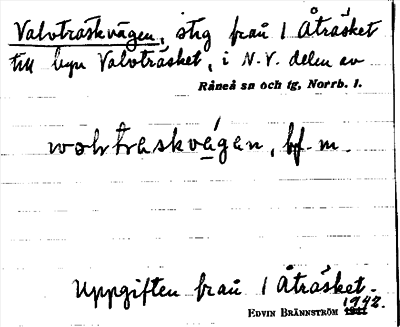 Valvträskvägen, stig från 1 Åträsket
till byn Valvträsket, i N.V. delen av
Råneå sn och tg, Norrb. l.
bf. m.
Uppgiften från 1 Åträsket.
1942.
EDVIN BRÄNNSTRÖM 1941